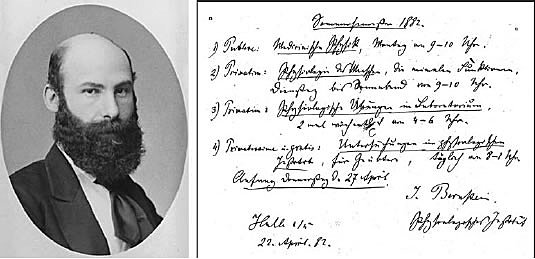 Sommersemester 1882.
1) Publice: Medicinische Physik, Montag von 9–10 Uhr.
2) Privatim: Physiologie des Menschen, die animalen Funktionen,
Dienstag bis Sonnabend von 9–10 Uhr.
3) Privatim: Physiologische Uebungen im Laboratorium,
2 mal wöchentlich von 4–6 Uhr.
4) Privatissime u. gratis: Untersuchungen im physiologischen
Institut, für Geübtere, täglich von Uhr
Anfang Donnerstag d. 27 April
J. Bernstein.
Physiologisches Institut
Halle a/S
22. April. 82.